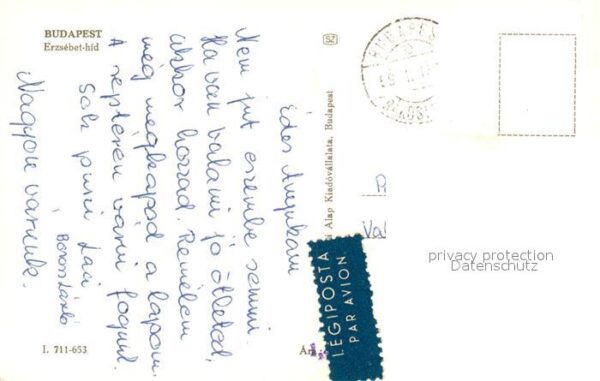 BUDAPEST
Erzsébet-híd
Édes Anyukám
Nem jut eszembe semmi.
Ha van valami jó ötleted,
akkor hozzad. Remélem
még megkapod a lapom.
A reptéren várni fogunk.
Sok puszi Laci
Boros László
Nagyon várunk.
I. 711-653
Alap Kiadóvállalata, Budapest
BUDAPES
LÉGIPOSTA
PAR AVION
privacy protection
Datenschutz